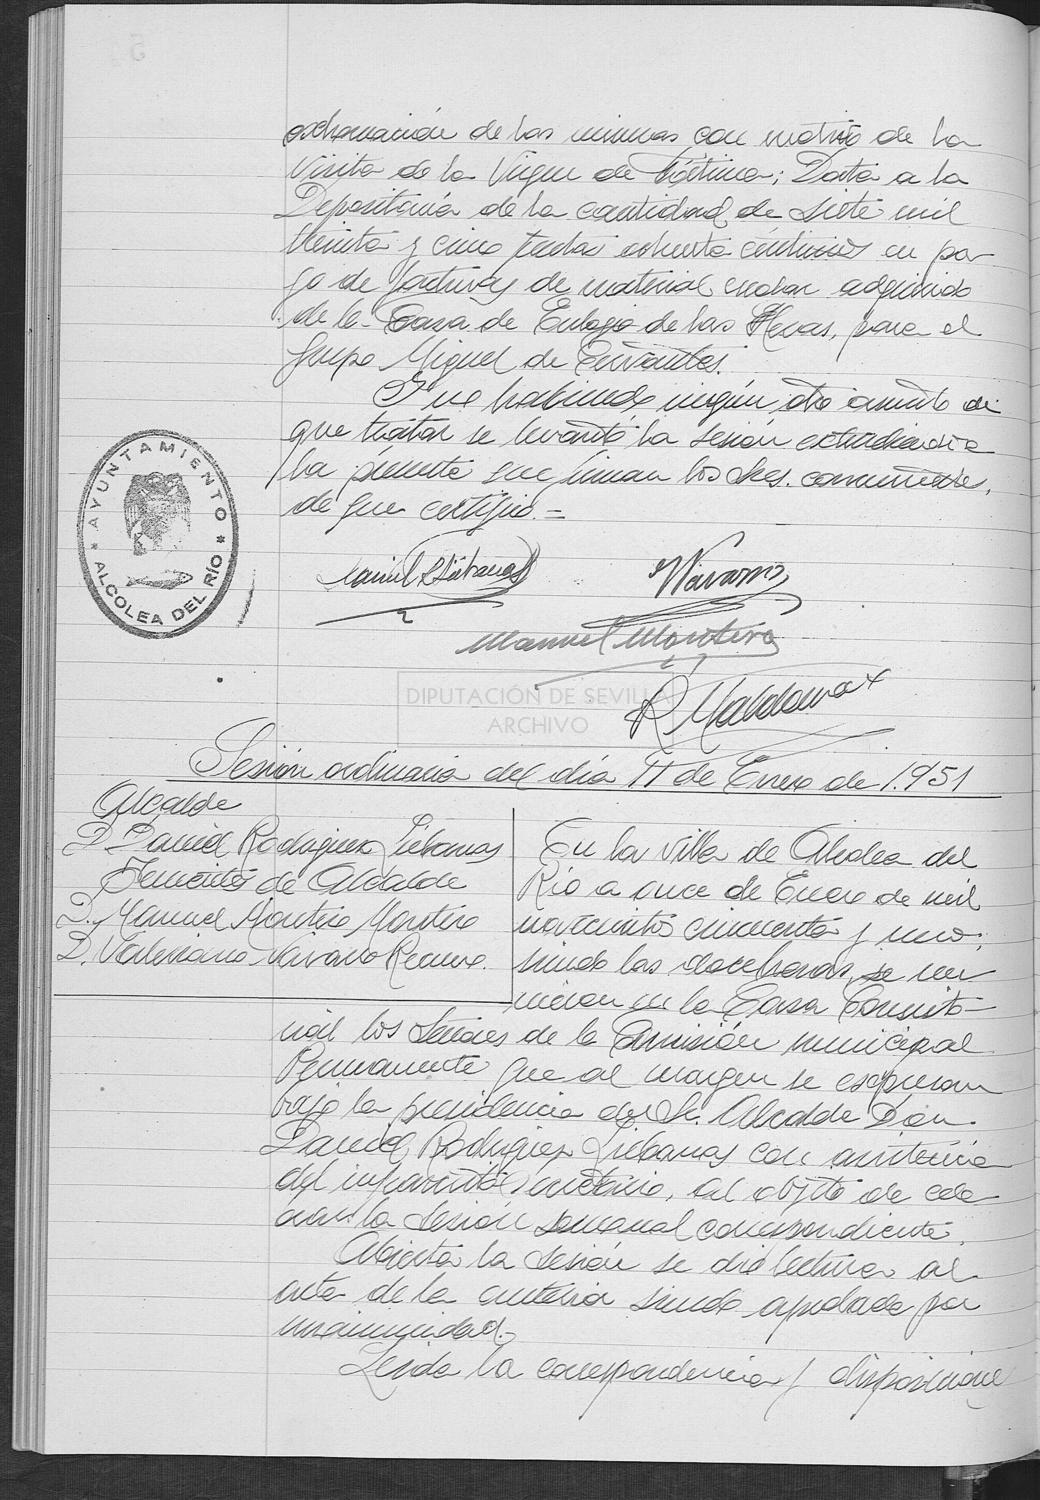 exhornación de las mismas con motivo de la
Visita de la Virgen de Fátima; Data a la
Depositaría de la cantidad de siete mil
treinta y cinco ptas ochenta céntimos en pa-
go de facturas de material escolar adquirido
de la Casa de Eulogio de las Heras, para el
Grupo Miguel de Cervantes.
Y no habiendo ningún otro asunto de
que tratar se levantó la sesión extendiéndose
la presente que firman los Sres. concurrentes,
de que certifico.=
AYUNTAMIENTO
* ALCOLEA DEL RÍO *
Daniel R Liébanas
VNavarro
Manuel Montero
R Maldonado
DIPUTACIÓN DE SEVILLA
ARCHIVO
Sesión ordinaria del día 11 de Enero de 1.951
Alcalde
D. Daniel Rodríguez Liébanas
Tenientes de Alcalde
D. Manuel Montero Montero
D. Valeriano Navarro
En la villa de Alcolea del
Río a once de Enero de mil
novecientos cincuenta y uno;
siendo las doce horas, se reu-
nieron en la Casa Consisto-
rial los Señores de la Comisión municipal
Permanente que al margen se expresan
bajo la presidencia del Sr. Alcalde Don
Daniel Rodríguez Liébanas con asistencia
del infrascrito Secretario, al objeto de cele-
brar la sesión semanal correspondiente.
Abierta la sesión se dio lectura al
acta de la anterior siendo aprobada por
unanimidad.-
Leida la correspondencia y disposiciones